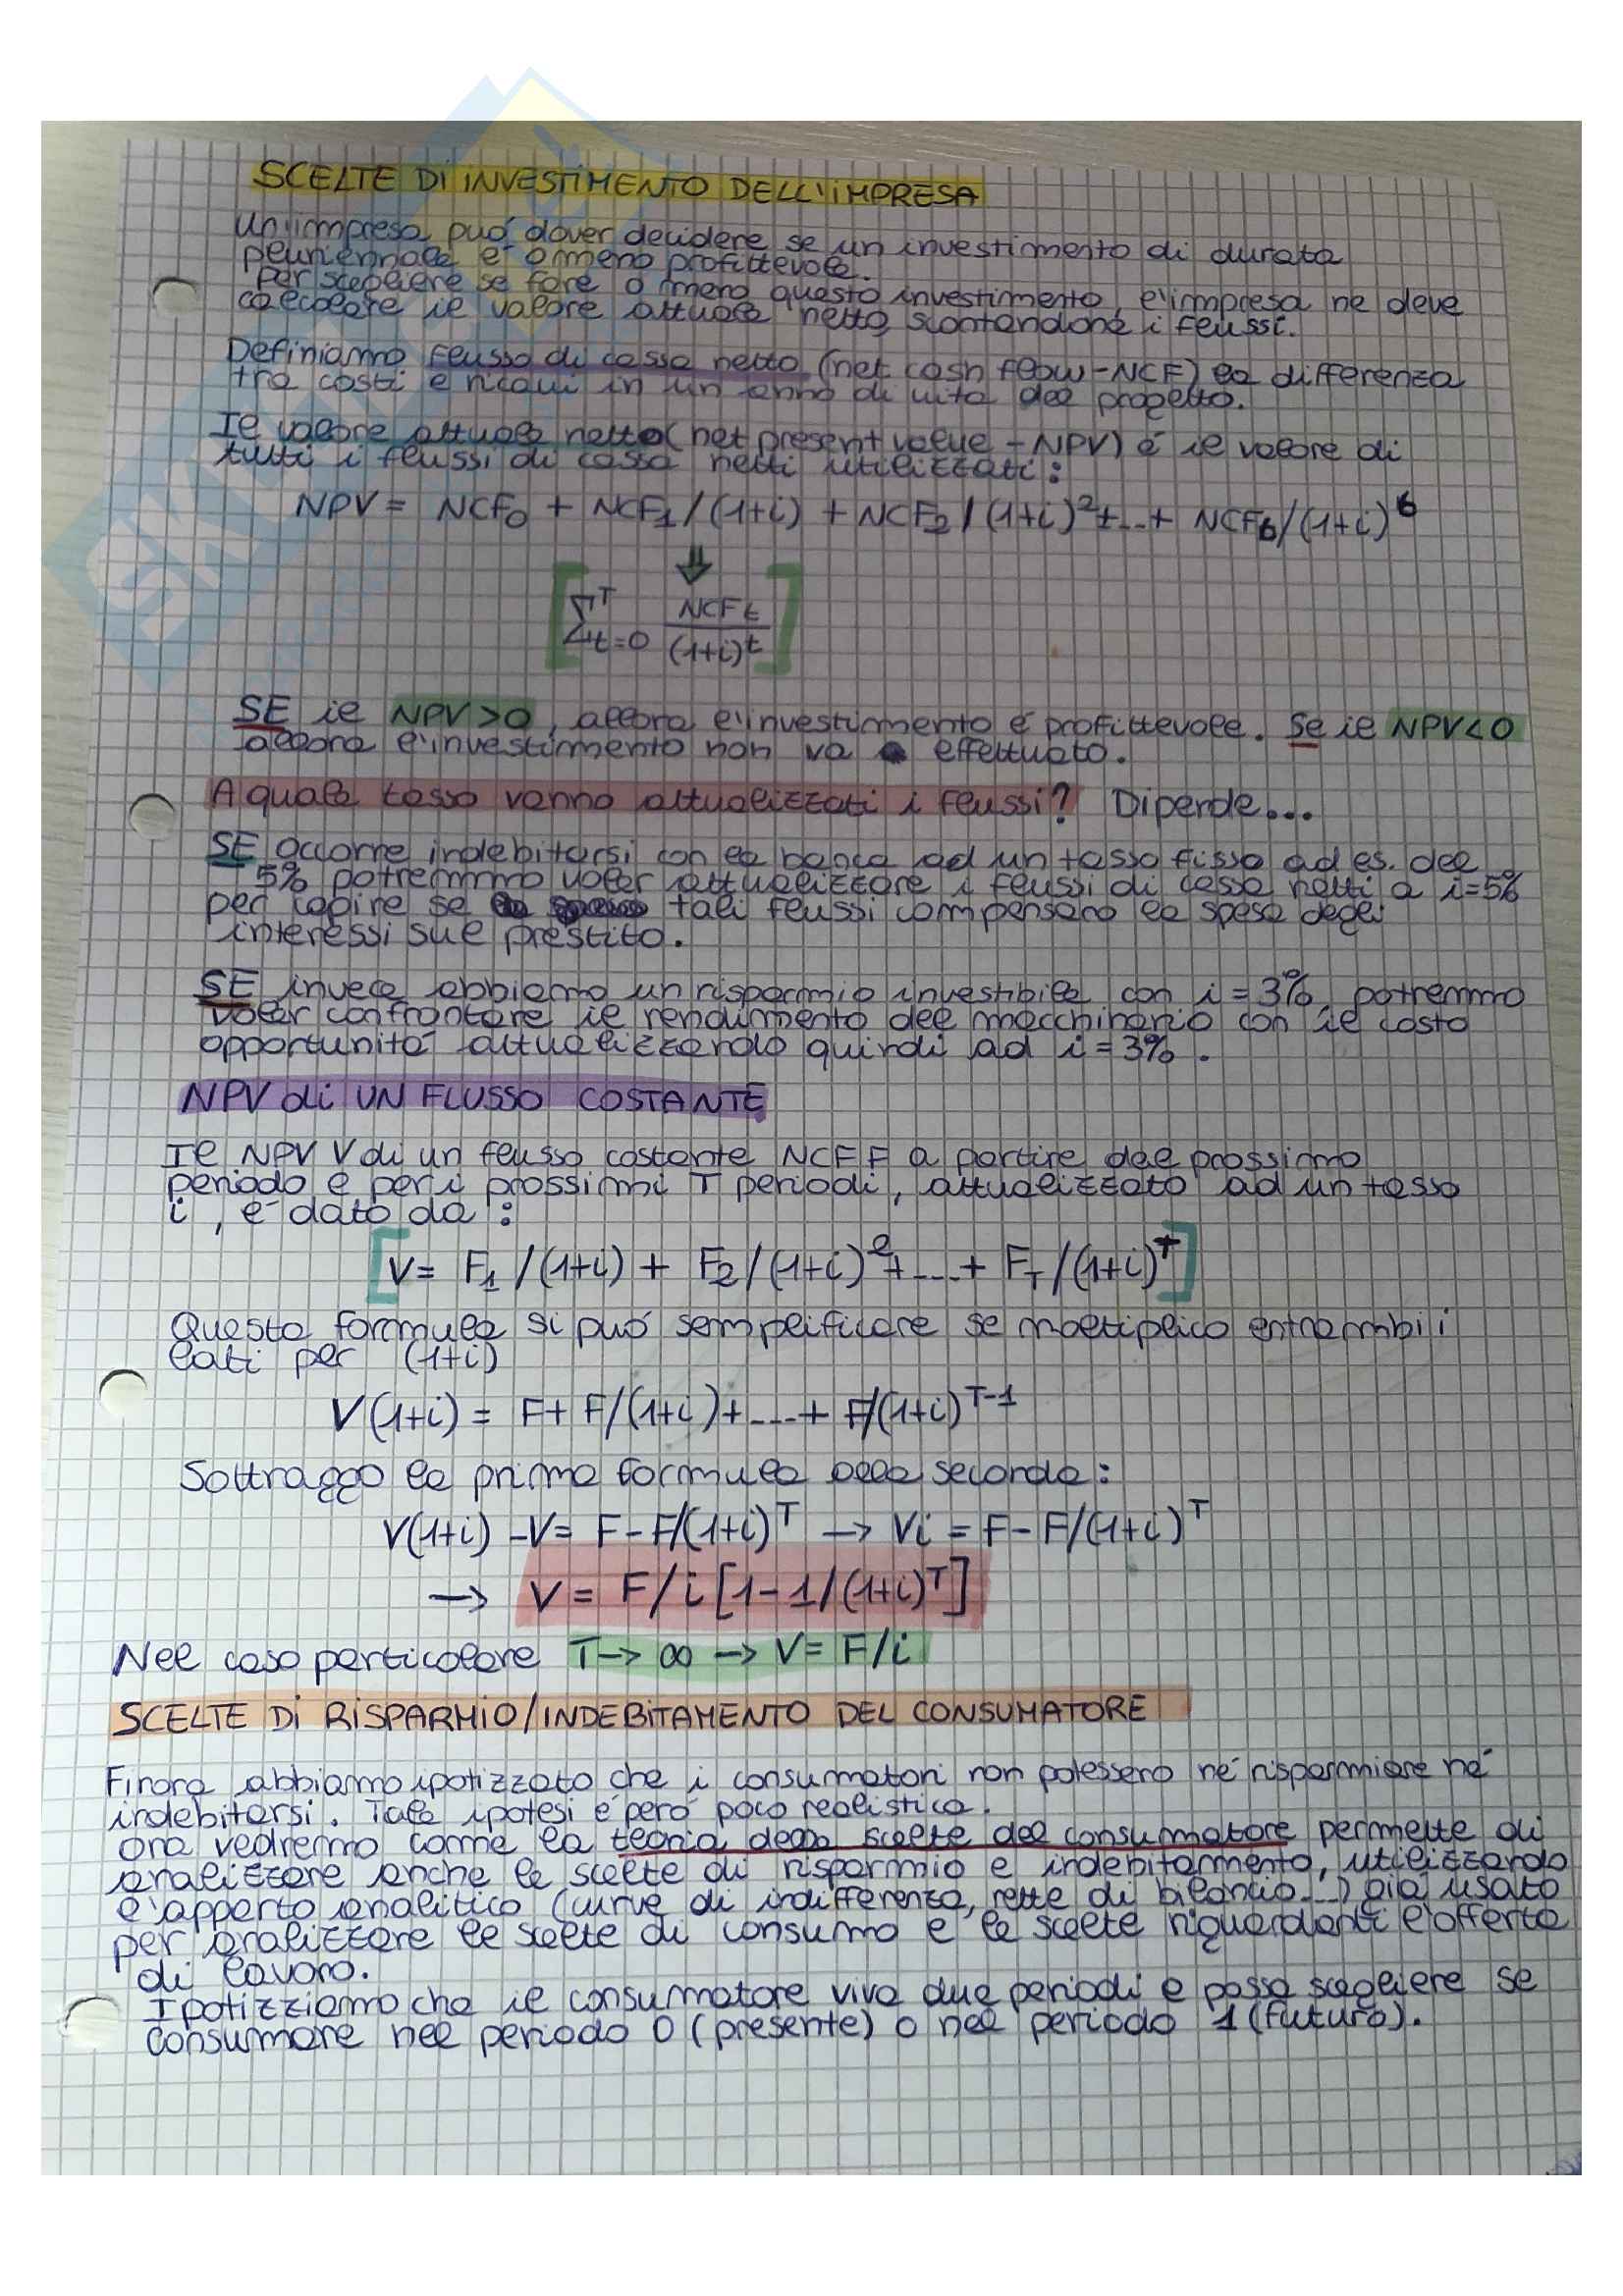 SCELTE Di iNVESTiMENTO DELL'iMPRESA
Un'impresa può dover decidere se un investimento di durata
pluriennale é o meno profittevole.
Per scegliere se fare o meno questo investimento, l'impresa ne deve
calcolare il valore attuale netto, scontandone i flussi.
Definiamo flusso di cassa netto (net cash flow - NCF) la differenza
tra costi e ricavi in un anno di vita del progetto.
Il valore attuale netto (net present value - NPV) é il valore di
tutti i flussi di cassa netti utilizzati:
NPV = NCF₀ + NCF₁/(1+i) + NCF₂/(1+i)²+...+ NCF₆/(1+i)⁶
⇓
[Σᵀt=0 NCFt/(1+i)ᵗ]
SE il NPV>0, allora l'investimento é profittevole. Se il NPV<0
allora l'investimento non va effettuato.
A quale tasso vanno attualizzati i flussi? Dipende...
SE occorre indebitarsi con la banca ad un tasso fisso ad es. del
5% potremmo voler attualizzare i flussi di cassa netti a i=5%
per capire se tali flussi compensano la spesa degli
interessi sul prestito.
SE invece abbiamo un risparmio investibile con i = 3%, potremmo
voler confrontare il rendimento del macchinario con il costo
opportunitá attualizzando quindi ad i = 3%.
NPV di UN FLUSSO COSTANTE
Il NPV V di un flusso costante NCF F a partire dal prossimo
periodo e per i prossimi T periodi, attualizzato ad un tasso
i, é dato da:
[V= F₁/(1+i) + F₂/(1+i)²+...+ F_T/(1+i)ᵀ]
Questa formula si puó semplificare se moltiplico entrambi i
lati per (1+i)
V(1+i) = F+ F/(1+i)+...+ F/(1+i)ᵀ⁻¹
Sottraggo la prima formula alla seconda:
V(1+i) -V= F-F/(1+i)ᵀ → Vi = F-F/(1+i)ᵀ
→ V = F/i [1-1/(1+i)ᵀ]
Nel caso particolare T→ ∞ → V= F/i
SCELTE Di RiSPARMiO/INDEBiTAMENTO DEL CONSUMATORE
Finora abbiamo ipotizzato che i consumatori non potessero né risparmiare né
indebitarsi. Tale ipotesi é peró poco realistica.
Ora vedremo come la teoria della scelte del consumatore permette di
analizzare anche le scelte di risparmio e indebitamento, utilizzando
l'apporto analitico (curve di indifferenza, rette di bilancio...) giá usato
per analizzare le scelte di consumo e le scelte riguardanti l'offerta
di lavoro.
Ipotizziamo che il consumatore viva due periodi e possa scegliere se
consumare nel periodo 0 (presente) o nel periodo 1 (futuro).